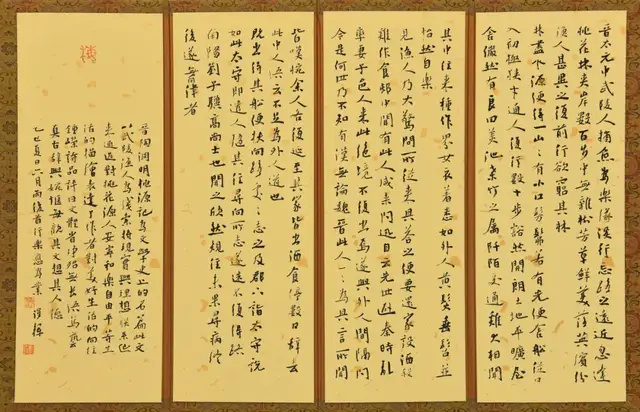 晉太元中武陵人捕魚為業緣溪行忘路之遠近忽逢
桃花林夾岸數百步中無雜樹芳草鮮美落英繽紛
漁人甚異之復前行欲窮其林
林盡水源便得一山々有小口髣髴若有光便舍船從口
入初極狹才通人復行數十步豁然開朗土地平曠屋
舍儼然有良田美池桑竹之屬阡陌交通雞犬相聞
其中往來種作男女衣著悉如外人黃髮垂髫並
怡然自樂
見漁人乃大驚問所從來具答之便要還家設酒殺
雞作食邨中聞有此人咸來問訊自云先世避秦時亂
率妻子邑人來此絕境不復出焉遂與外人間隔問
今是何世乃不知有漢無論魏晉此人一一為具言所聞
皆嘆惋余人各復延至其家皆出酒食停數日辭去
此中人語云不足為外人道也
既出得其船便扶向路處々志之及郡下詣太守說
如此太守即遣人隨其往尋向所志遂迷不復得路
南陽劉子驥高尚士也聞之欣然規往未果尋病終
後遂無問津者
晉陶淵明桃源記為文學史上的名篇此文
以武陵漁人為線索將現實與理想联系起
來通過對桃花源人安寧和樂自由平等生
活的描繪表達了作者對美好生活的向往
鍾嶸詩品評曰文體省淨殆無長語篤意
真古辭興婉愜每觀其文想其人德
乙巳夏日六月雨後